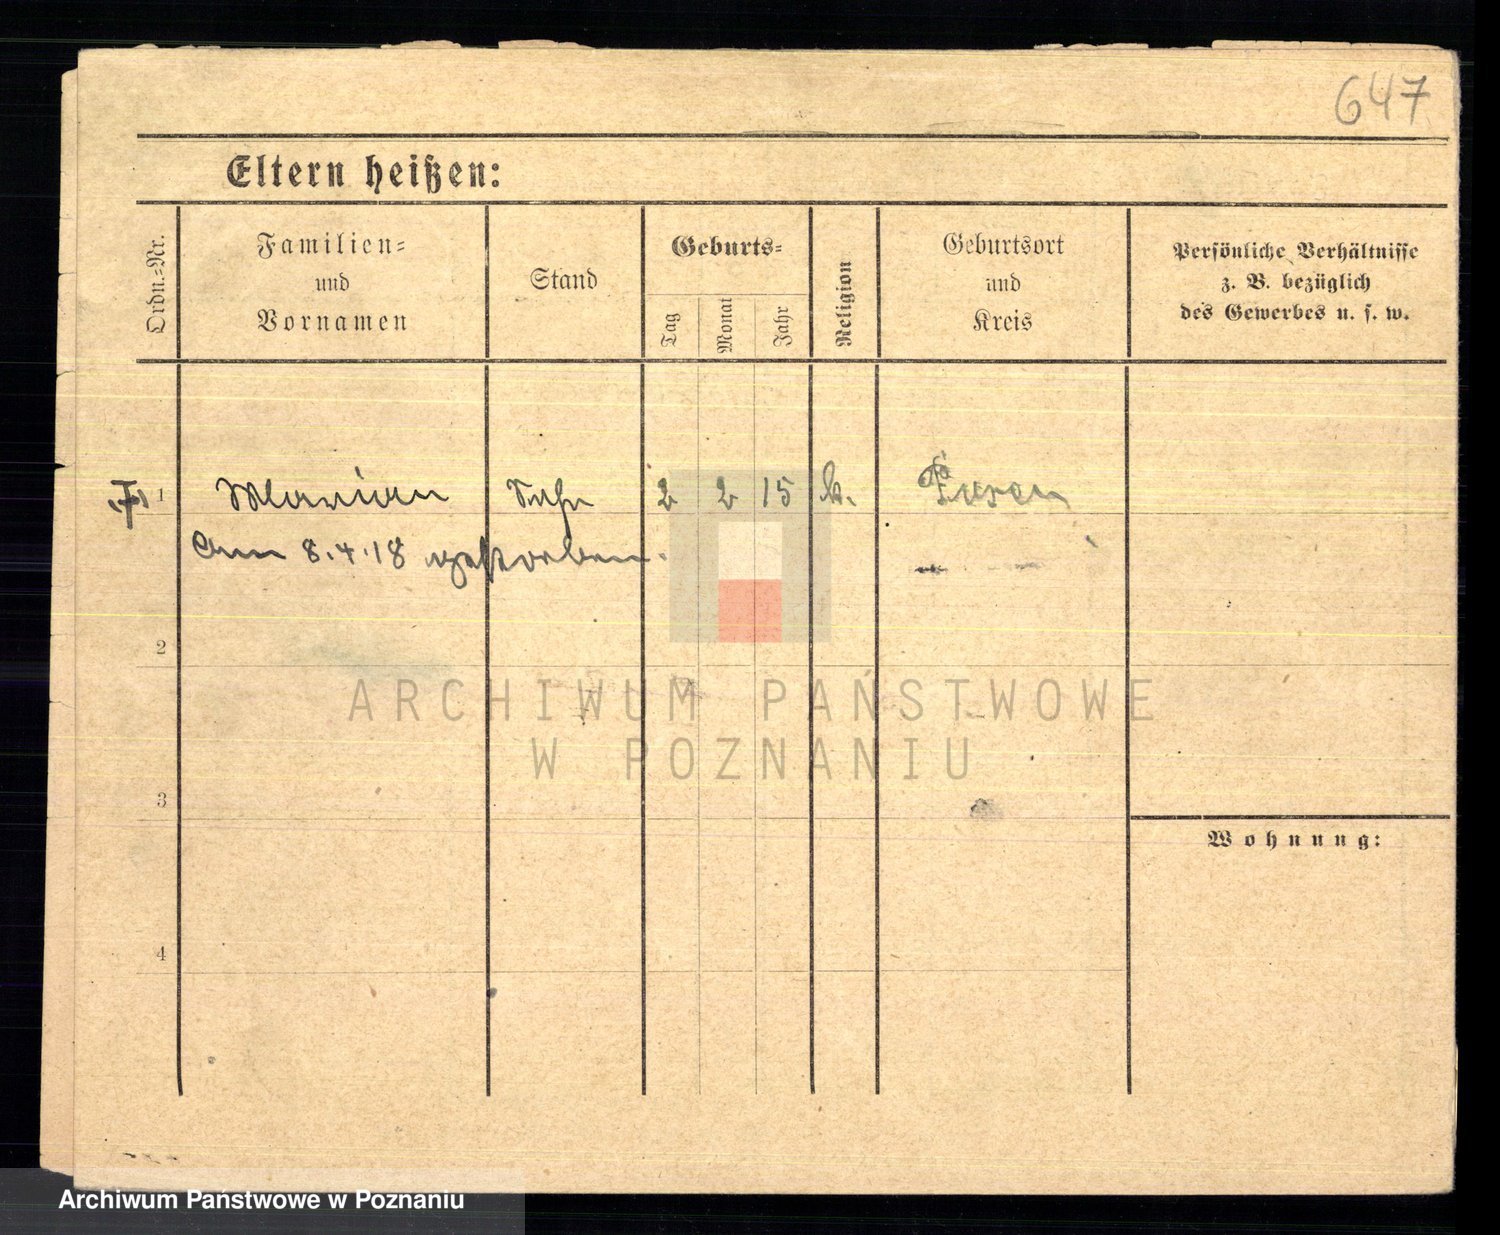 647
Eltern heißen:
Ordn.-Nr.
Familien-
und
Vornamen
Stand
Geburts-
Tag
Monat
Jahr
Religion
Geburtsort
und
Kreis
Persönliche Verhältnisse
z. B. bezüglich
des Gewerbes u. s. w.
1 Marian Sohn 2 2 15 k. Posen
am 8.4.18 gestorben.
2
ARCHIWUM PAŃSTWOWE
W POZNANIU
3
Wohnung:
4
Archiwum Państwowe w Poznaniu